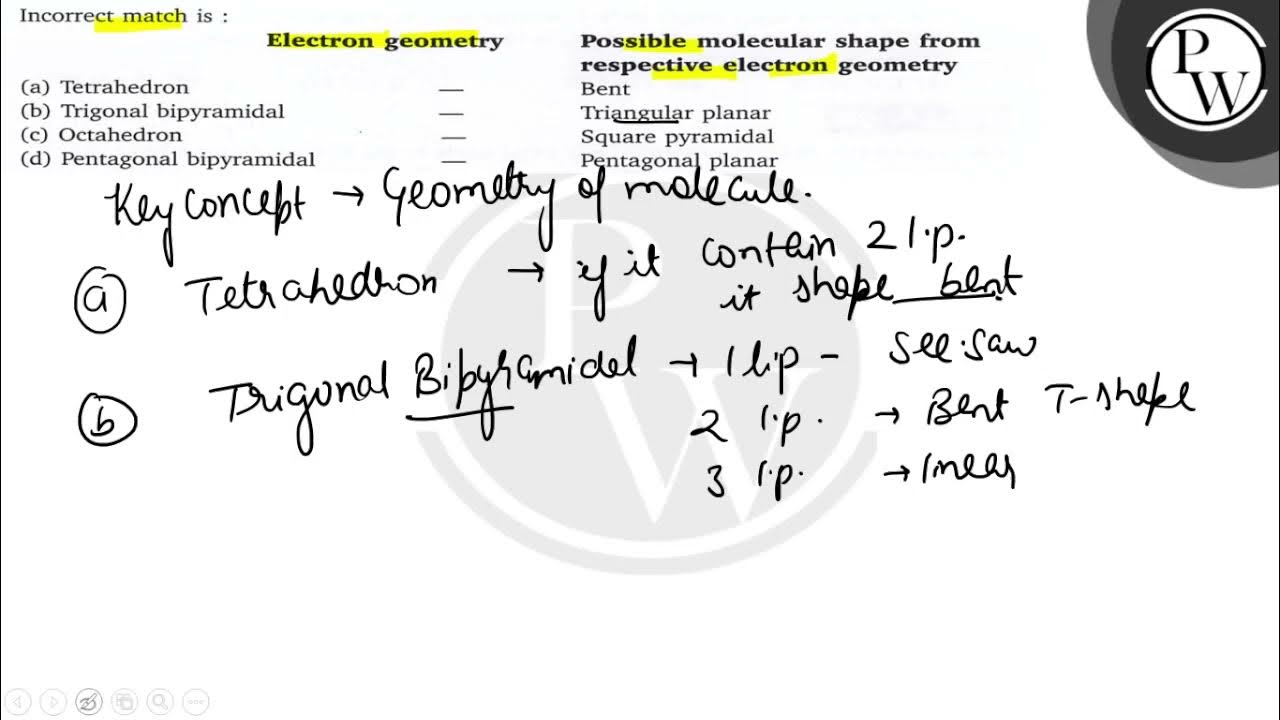 Incorrect match is :
Electron geometry Possible molecular shape from
respective electron geometry
(a) Tetrahedron — Bent
(b) Trigonal bipyramidal — Triangular planar
(c) Octahedron — Square pyramidal
(d) Pentagonal bipyramidal — Pentagonal planar
Key concept → Geometry of molecule.
(a) Tetrahedron → if it contain 2 l.p.
it shape bent
(b) Trigonal Bipyramidel → 1 l.p - see-saw
2 l.p. → Bent T-shape
3 l.p. → linear
P
W